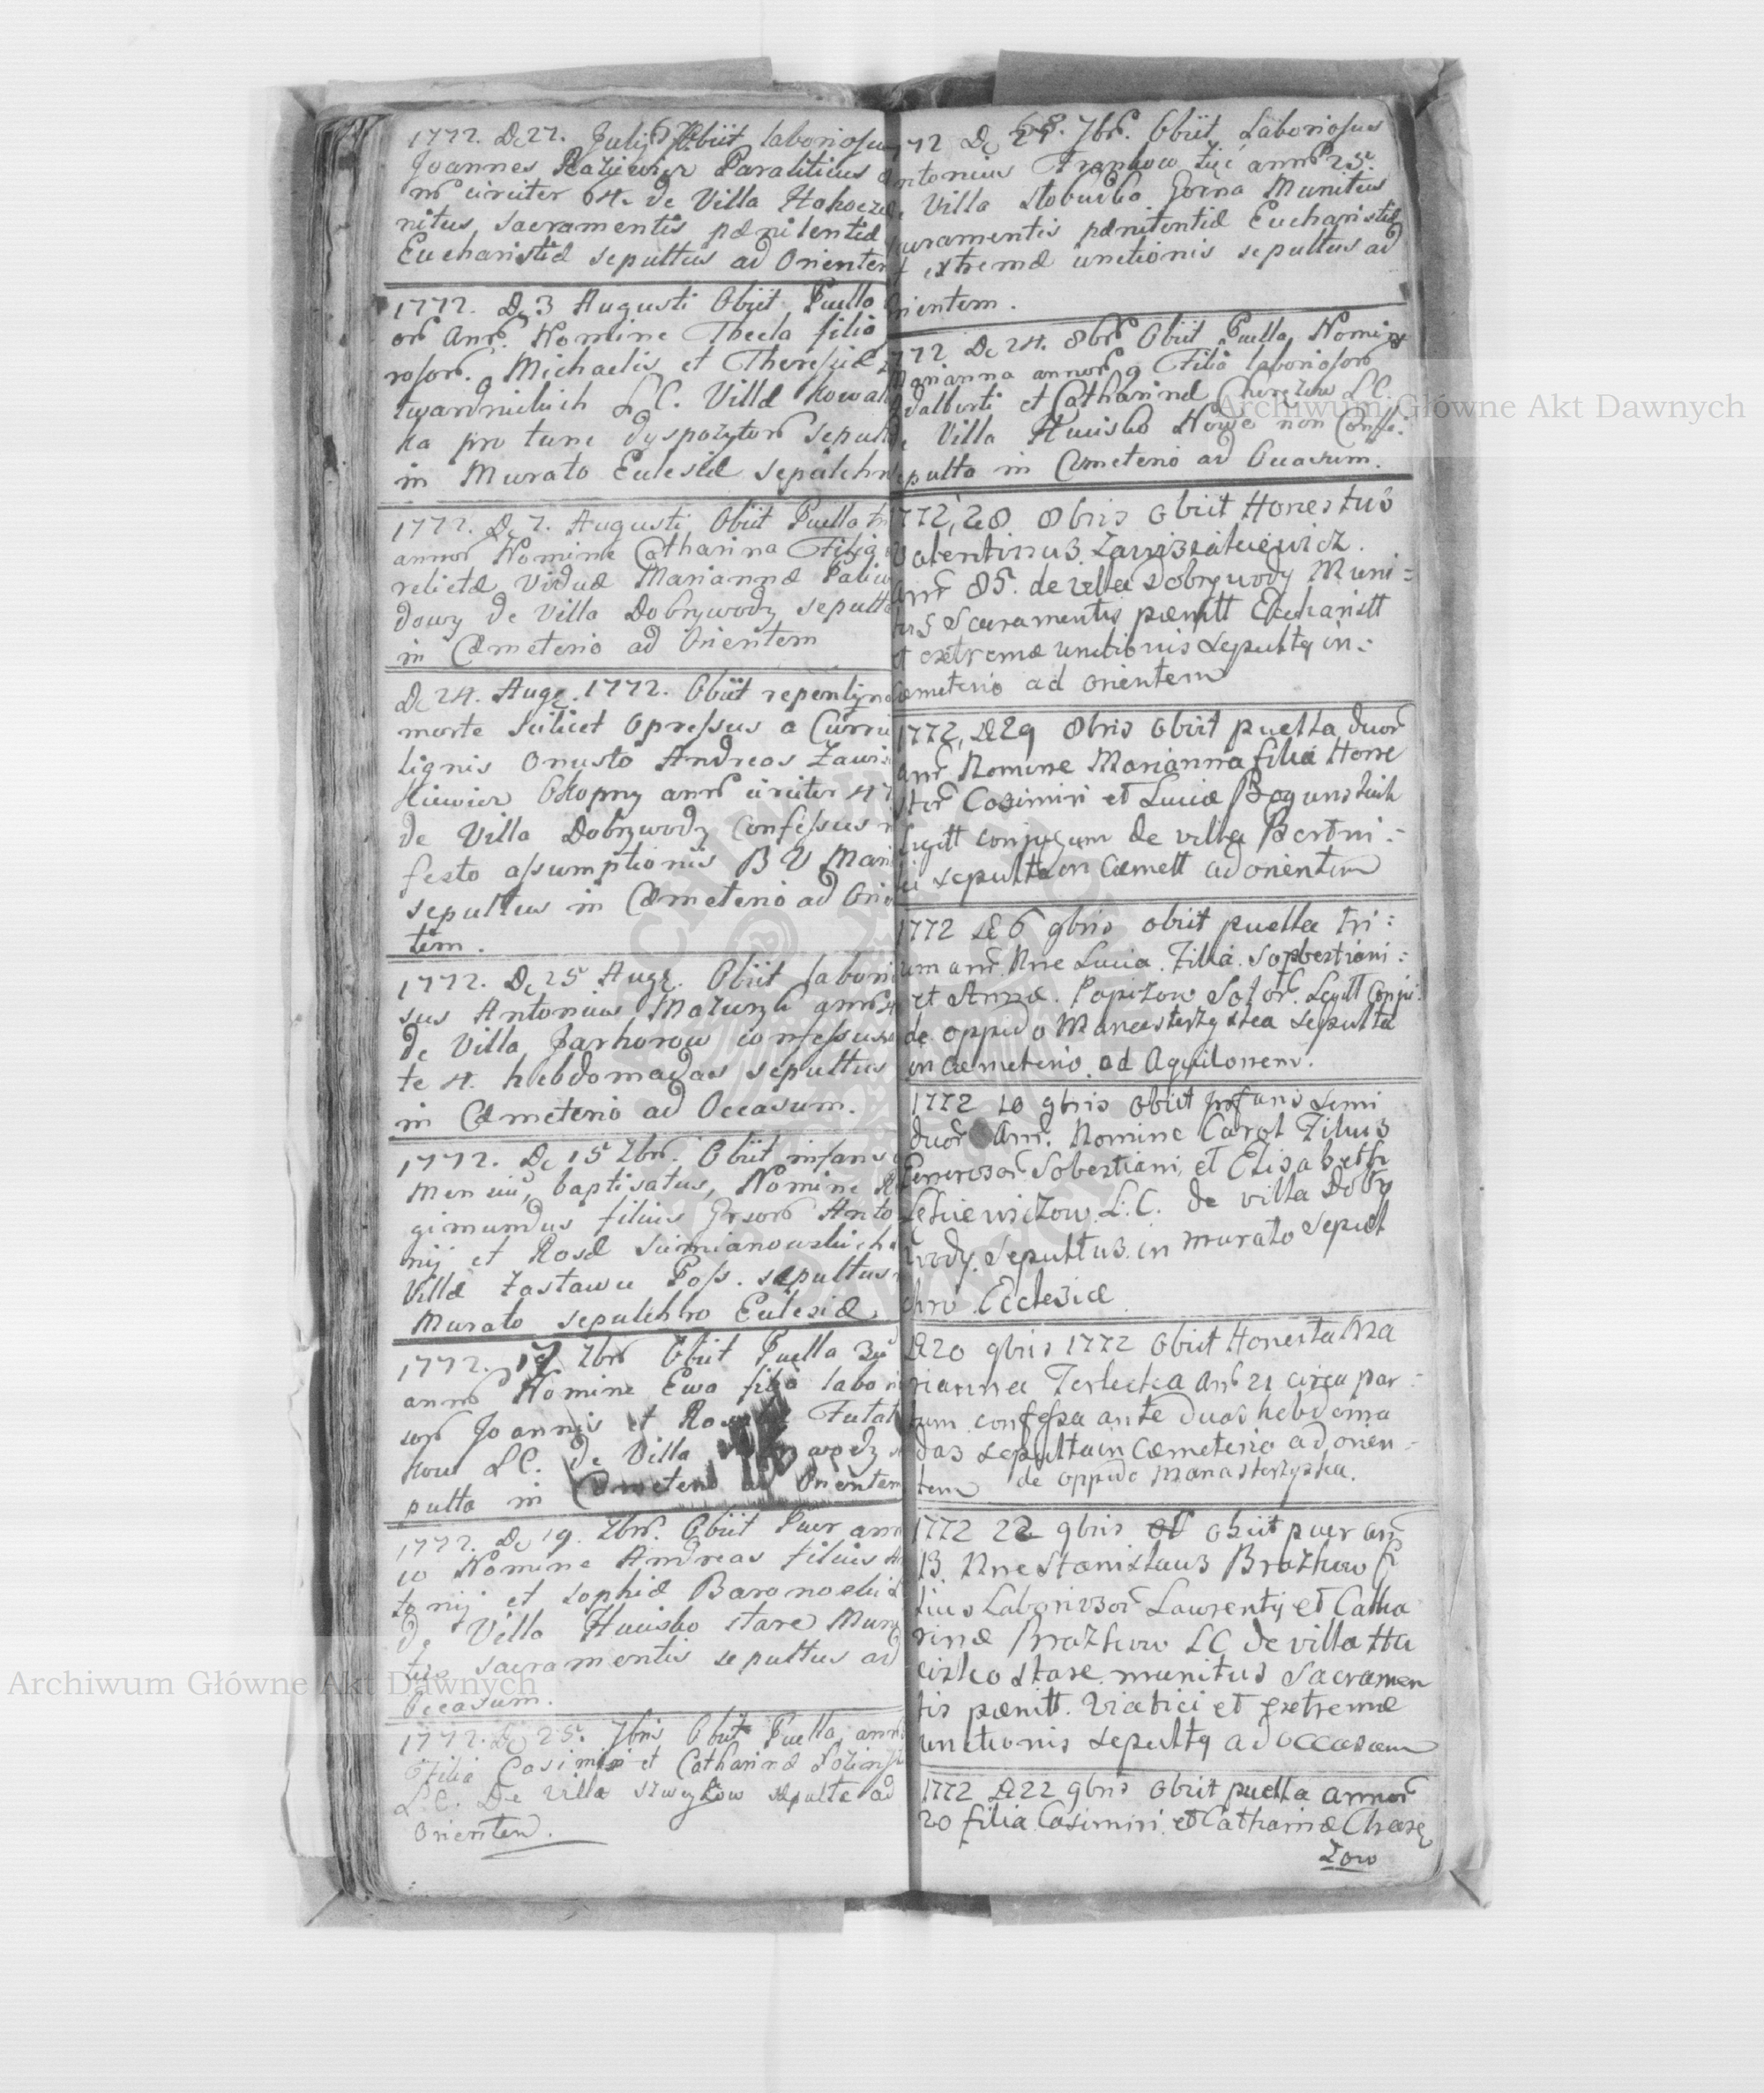 1772. De 22. Julij Obiit laboriosus
Joannes Paraliticus
circiter 64. de Villa
nitus sacramentis pænitentiæ
Eucharistiæ sepultus ad Orienten
1772. De 3 Augusti Obiit Puella
Annr. Nomine Thecla filia
Michaelis et Theresiæ
L.C. Villæ Kowal
ka pro tunc dyspozytor sepul
in Murato Eclesiæ sepulchr
1772. De 7. Augusti Obiit Puella tri
annor Nomine Catharina Filia
relictæ Viduæ Mariannæ
de Villa Dobrywody sepulta
in Cæmeterio ad Orientem
De 24. Aug. 1772. Obiit repentina
morte scilicet opressus a Curru
lignis onusto Andreas Zawis
annr circiter 47
de Villa Dobrywody Confessus
festo assumptionis B V Mari
sepultus in Cæmeterio ad Orie
tem.
1772. De 25 Aug. Obiit labori
sus Antonius Mazuryk annr
de Villa Jarhorow confessus
te 4. hebdomadas sepultus
in Cæmeterio ad Occasum.
1772. De 15 7br. Obiit infans
Mensiu, baptisatus, Nomine
gimundus filius Grsor Anto
nij et Rosæ Siemianowskich
Villæ Zastawce Poss. sepultus
Murato sepulchro Eclesiæ
1772. 17 7br Obiit Puella 3u
annr Nomine Ewa filia labori
sor Joannis et
kow L.C. de Villa
pulta in Cæmeterio ad Orientem
1772. De 19. 7br. Obiit Puer ann
10 Nomine Andreas filius An
tonij et Sophiæ
de Villa Huisko stare Muni
tus sacramentis sepultus ad
Occasum.
1772. De 25. 7bris Obiit Puella ann
Filia Casimiri et Catharinæ
L.C. De Villa sepulta ad
Orientem.
72 De 7br. Obiit Laboriosus
ntonius annr 25.
Villa Slobudka Gorna Munitus
acramentis pænitentiæ Eucharistiæ
t extremæ unctionis sepultus ad
rientem.
772 De 24. 8br Obiit Puella Nomine
Marianna annor 9 Filia laboriosor
dalberti et Catharinæ L.C.
de Villa Huisko Nowe non Confe.
epulta in Cæmeterio ad Occasum.
1772, 28 8bris obiit Honestus
Valentinus
annr 85. de villa Dobrywody Muni =
tus Sacramentis pænitt Eucharistt
et extremæ unctionis sepultq in :
Cæmeterio ad orientem
1772, De 29 8bris obiit puella duor
anr. Nomine Marianna filia Hone
stor Casimiri et Luciæ
Legitt conjugum de villa Bertni :
ki sepulta in Cæmett ad orientem
1772 De 6 9bris obiit puella tri :
um anr. Nne Lucia. Filia. Sobestiani :
et Annæ. Popizow Legitt Conju.
de oppido Manasterzyska sepulta
in Cæmeterio ad Aquilonem.
1772 10 9bris obiit infans semi
duor Anr. Nomine Carol Filius
Generosor Sobestiani, et Elisabeth
L.C. de villa Dobry
wody. Sepultus in murato sepul
chro Ecclesiæ
De 20 9bris 1772 Obiit Honesta Ma
rianna Terlecka Anr 21 circa par =
tum confessa ante duas hebdoma
das sepulta in Cæmeterio ad orien =
tem de oppido Manasterzyska.
1772 22 9bris obiit puer anr
13. Nne Stanislaus Brazkow fi
lius Laboriosor Laurentij et Catha
rinæ Brazkow L.C. de villa Hu
cisko stare munitus Sacramen
tis pænitt. Viatici et Extremæ
unctionis sepultq ad occasum
1772 De 22 9bris obiit puella annor
20 filia Casimiri et Catharinæ
zow
Archiwum Główne Akt Dawnych
Archiwum Główne Akt Dawnych